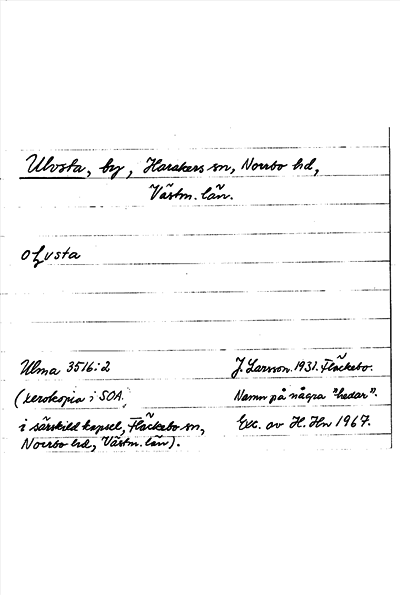 Ulvsta, by, Harakers sn, Norrbo hd,
Västm. län.
Ulma 3516:2
J. Larsson. 1931. Fläckebo.
(xerokopia i SOA,
Namn på några "hedar".
i särskild kapsel, Fläckebo sn,
Exc. av H. Hn 1967.
Norrbo hd, Västm. län).